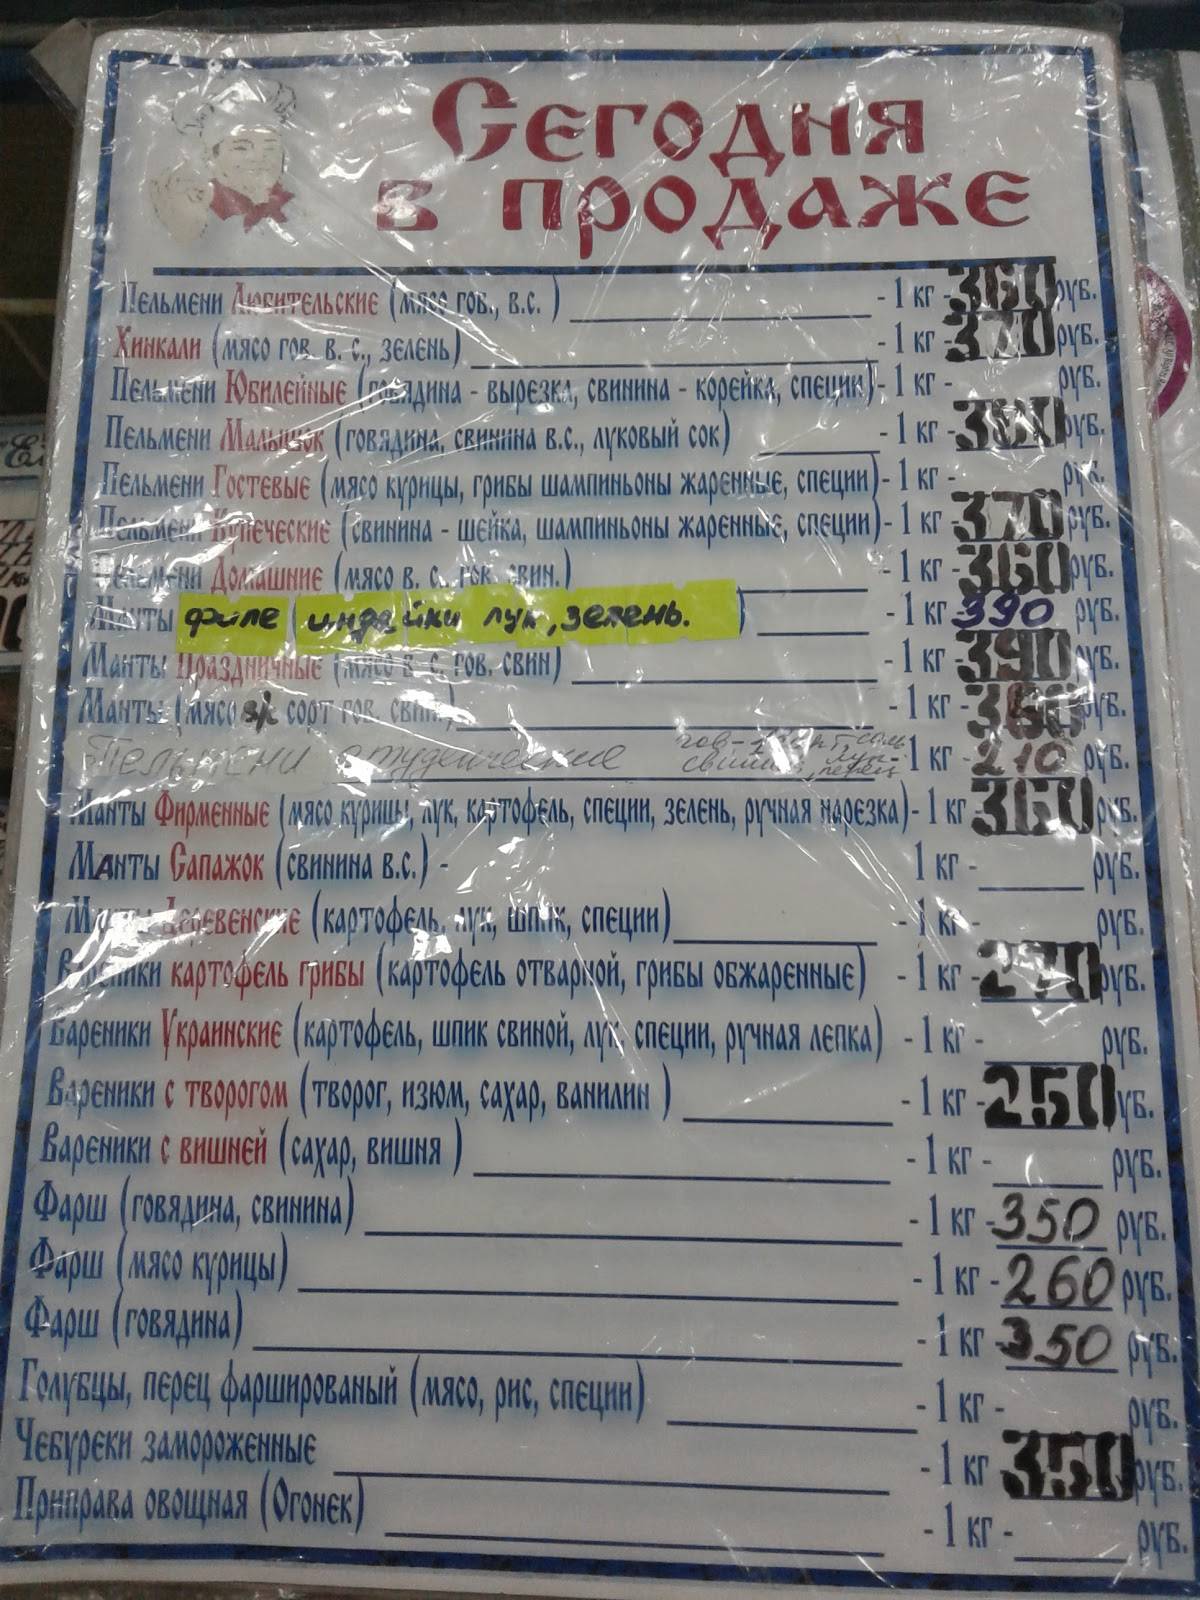 Сегодня
в продаже
Пельмени Любительские (мясо гов., в.с. ) - 1 кг - 360 руб.
Хинкали (мясо гов. в. с., зелень) - 1 кг - 370 руб.
Пельмени Юбилейные (говядина - вырезка, свинина - корейка, специи) - 1 кг - руб.
Пельмени Малышок (говядина, свинина в.с., луковый сок) - 1 кг - руб.
Пельмени Гостевые (мясо курицы, грибы шампиньоны жаренные, специи) - 1 кг - руб.
Пельмени Купеческие (свинина - шейка, шампиньоны жаренные, специи) - 1 кг - 370 руб.
Пельмени Домашние (мясо в. с. гов. свин.) - 1 кг - 360 руб.
Манты филе индейки лук, зелень. ) - 1 кг 390 руб.
Манты Праздничные (мясо в. с. гов. свин) - 1 кг - 390 руб.
Манты (мясо сорт гов. свин.) - 1 кг - руб.
Пельмени студенческие - 1 кг - 210 руб.
Манты Фирменные (мясо курицы, лук, картофель, специи, зелень, ручная нарезка) - 1 кг - 360 руб.
Манты Сапажок (свинина в.с.) - 1 кг - руб.
Манты Деревенские (картофель, лук, шпик, специи) - 1 кг - руб.
Вареники картофель грибы (картофель отварной, грибы обжаренные) - 1 кг - руб.
Вареники Украинские (картофель, шпик свиной, лук, специи, ручная лепка) - 1 кг - руб.
Вареники с творогом (творог, изюм, сахар, ванилин ) - 1 кг - 250 руб.
Вареники с вишней (сахар, вишня ) - 1 кг - руб.
Фарш (говядина, свинина) - 1 кг - 350 руб.
Фарш (мясо курицы) - 1 кг - 260 руб.
Фарш (говядина) - 1 кг - 350 руб.
Голубцы, перец фаршированый (мясо, рис, специи) - 1 кг - руб.
Чебуреки замороженные - 1 кг 350 руб.
Приправа овощная (Огонек) - 1 кг - руб.